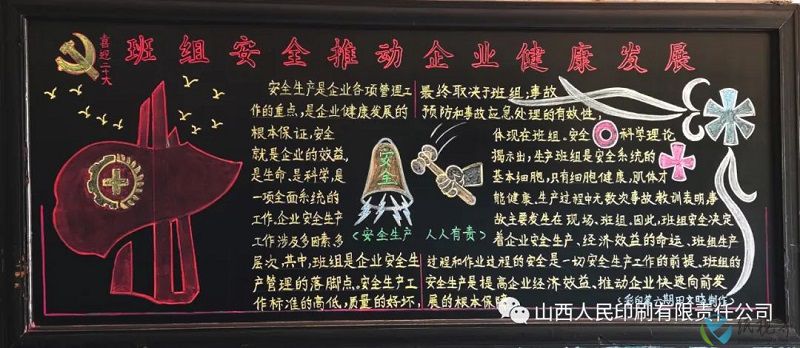 喜迎二十大
班组安全推动企业健康发展
安全生产是企业各项管理工
作的重点,是企业健康发展的
根本保证,安全
就是企业的效益,
是生命、是科学,是
一项全面系统的
工作,企业安全生产
工作涉及多因素、多
层次,其中,班组是企业安全生
产管理的落脚点,安全生产工
作标准的高低,质量的好坏,
安全
《安全生产 人人有责》
最终取决于班组;事故
预防和事故应急处理的有效性,
体现在班组,安全科学理论
揭示出,生产班组是安全系统的
基本细胞,只有细胞健康,肌体才
能健康,生产过程中无数次事故教训表明事
故主要发生在现场、班组,因此,班组安全决定
着企业安全生产、经济效益的命运、班组生产
过程和作业过程的安全是一切安全生产工作的前提、班组的
安全生产是提高企业经济效益、推动企业快速向前发
展的根本保障
山西人民印刷有限责任公司